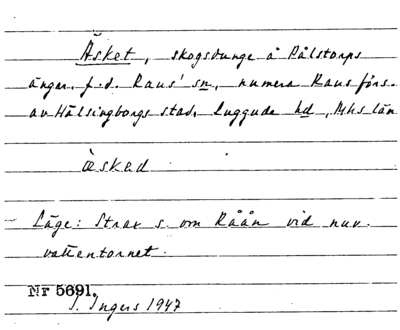 Äsket, skogsdunge å Pålstorps
ängar, f.d. Raus' sn, numera Raus förs.
av Hälsingborgs stad, Luggude hd, Mhs län
äsked
Läge: Strax s. om Råån vid nuv.
vattentornet.
Nr 5691.
I. Ingers 1947